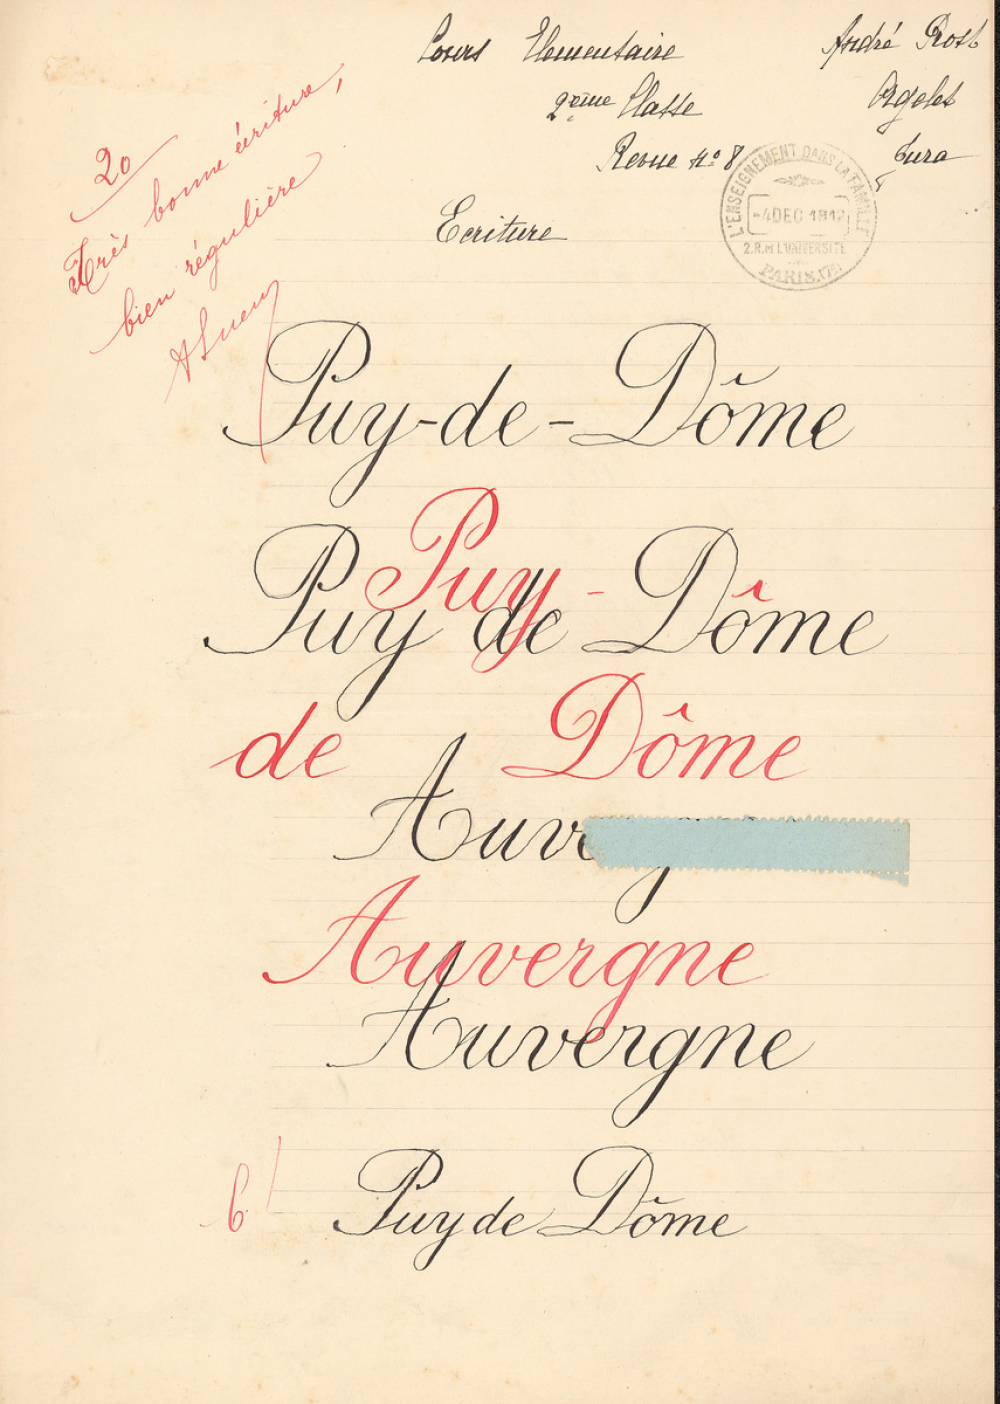 Cours Elementaire
André Rost
2ème Classe
Orgelet
Revue Nº 8
Jura
Ecriture
L'ENSEIGNEMENT DANS LA FAMILLE
-4 DEC 1912
2. R. de L'UNIVERSITÉ
PARIS. (7e)
20
Très bonne écriture,
bien régulière
Puy-de-Dôme
Puy -
Puy de Dôme
de Dôme
Auve
Auvergne
Auvergne
6.
Puy de Dôme